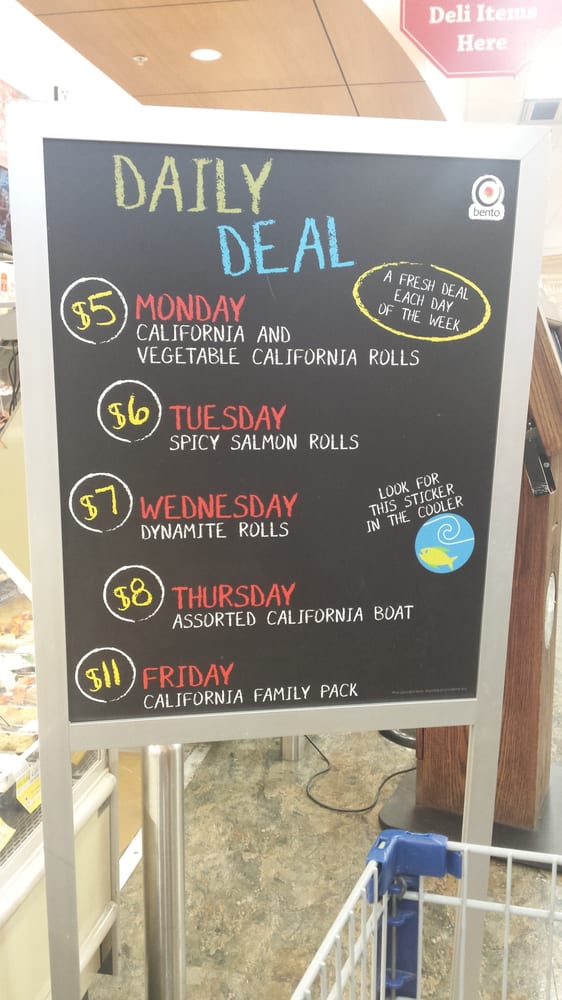 Deli Items
Here
DAILY
DEAL
bento
A FRESH DEAL
EACH DAY
OF THE WEEK
$5 MONDAY
CALIFORNIA AND
VEGETABLE CALIFORNIA ROLLS
$6 TUESDAY
SPICY SALMON ROLLS
LOOK FOR
THIS STICKER
IN THE COOLER
$7 WEDNESDAY
DYNAMITE ROLLS
$8 THURSDAY
ASSORTED CALIFORNIA BOAT
$11 FRIDAY
CALIFORNIA FAMILY PACK